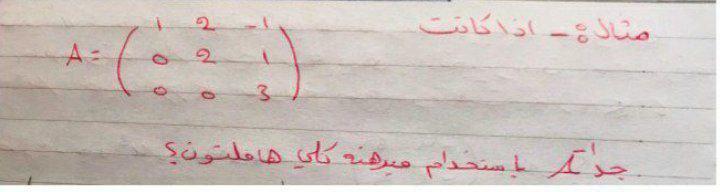 مثال :- اذا كانت
A = ( 1 2 -1
0 2 1
0 0 3 )
جد باستخدام مبرهنة كلي هاملتون؟